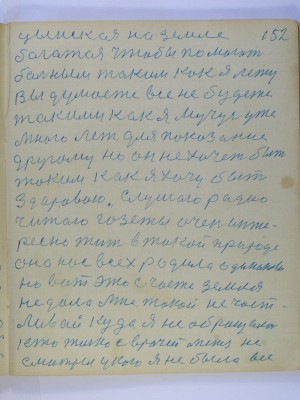 цынская на земле 152
богатая чтобы помогат
больным таким как я лежу
Вы думаете все не будете
такими как я мучус уже
много лет для показание
другому но он не хочет быт
таким как я хочу быт
здаровою. слушаю радио
читаю газеты очен инте-
ресно жит в такой природе
она нас всех родила одинаково
но вот это счасте земля
не дала мне такой не част-
ливай куда я не обращалас
к кто только с врачей меня не
смотрел у кого я не была все